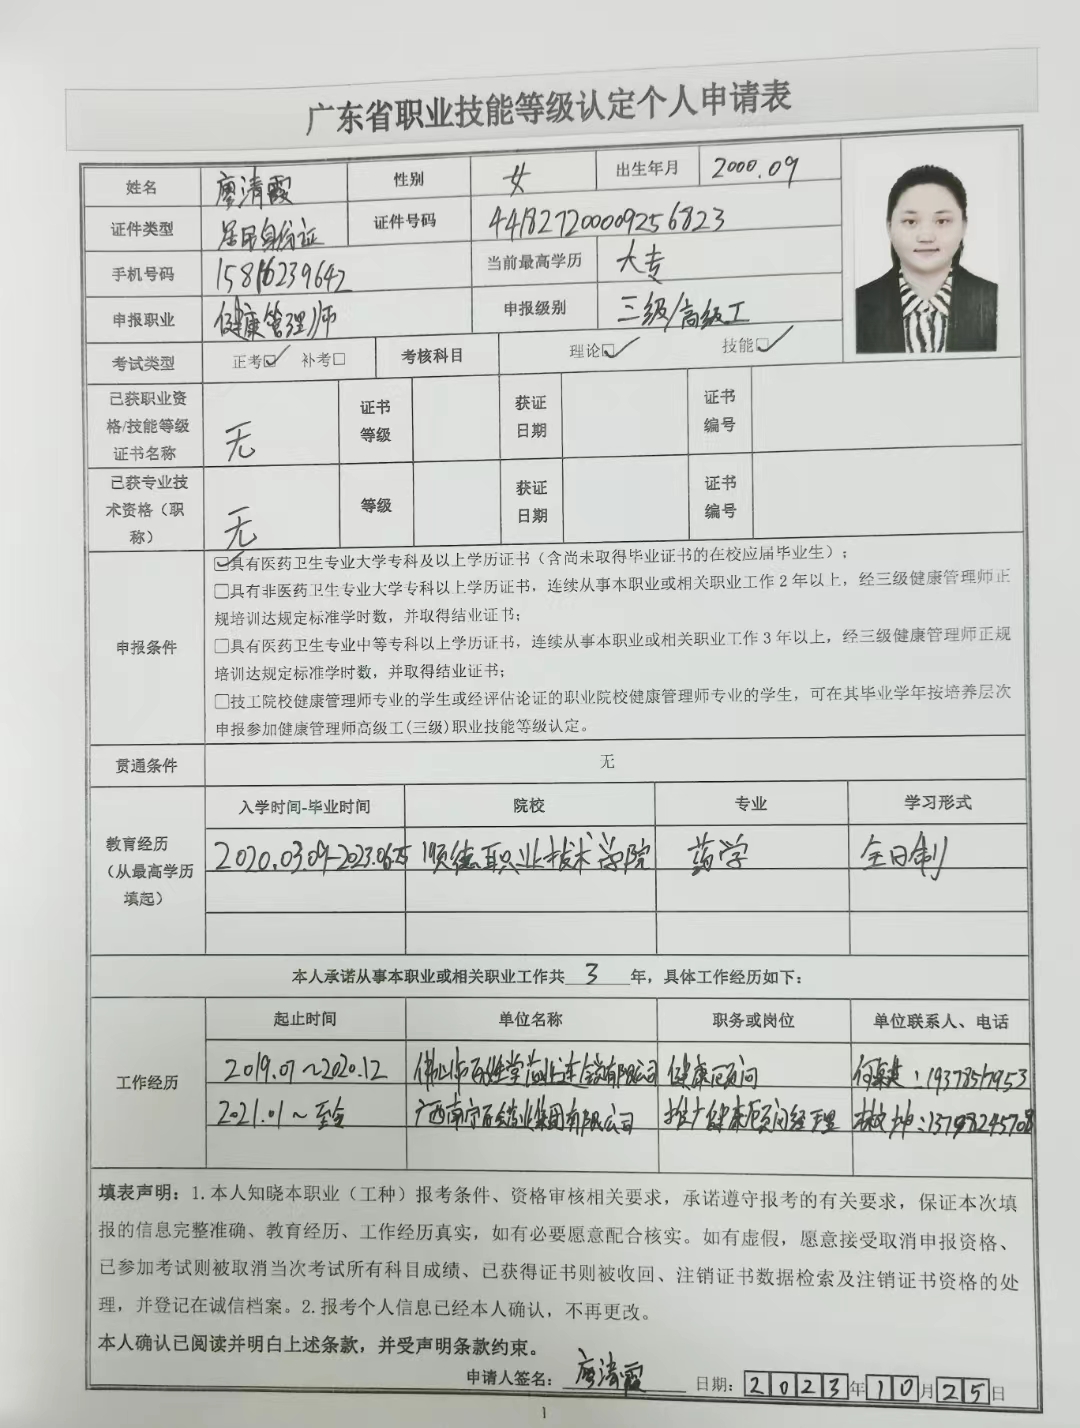 广东省职业技能等级认定个人申请表
姓名 廖清霞 性别 女 出生年月 2000.09
证件类型 居民身份证 证件号码 441827200009256823
手机号码 15816239642 当前最高学历 大专
申报职业 健康管理师 申报级别 三级/高级工
考试类型 正考☑ 补考□ 考核科目 理论☑ 技能☑
已获职业资格/技能等级证书名称 无 证书等级 获证日期 证书编号
已获专业技术资格（职称） 无 等级 获证日期 证书编号
申报条件
☑具有医药卫生专业大学专科及以上学历证书（含尚未取得毕业证书的在校应届毕业生）；
□具有非医药卫生专业大学专科以上学历证书，连续从事本职业或相关职业工作2年以上，经三级健康管理师正
规培训达规定标准学时数，并取得结业证书；
□具有医药卫生专业中等专科以上学历证书，连续从事本职业或相关职业工作3年以上，经三级健康管理师正规
培训达规定标准学时数，并取得结业证书；
□技工院校健康管理师专业的学生或经评估论证的职业院校健康管理师专业的学生，可在其毕业学年按培养层次
申报参加健康管理师高级工(三级)职业技能等级认定。
贯通条件 无
教育经历（从最高学历填起） 入学时间-毕业时间 院校 专业 学习形式
2020.03.09-2023.06.25 顺德职业技术学院 药学 全日制
本人承诺从事本职业或相关职业工作共 3 年，具体工作经历如下：
工作经历 起止时间 单位名称 职务或岗位 单位联系人、电话
2019.07～2020.12 佛山市百姓堂药业连锁有限公司 健康顾问
2021.01～至今 广西南宁百会药业集团有限公司 推广健康顾问经理 :13798245708
填表声明：1.本人知晓本职业（工种）报考条件、资格审核相关要求，承诺遵守报考的有关要求，保证本次填
报的信息完整准确、教育经历、工作经历真实，如有必要愿意配合核实。如有虚假，愿意接受取消申报资格、
已参加考试则被取消当次考试所有科目成绩、已获得证书则被收回、注销证书数据检索及注销证书资格的处
理，并登记在诚信档案。2.报考个人信息已经本人确认，不再更改。
本人确认已阅读并明白上述条款，并受声明条款约束。
申请人签名：廖清霞 日期：2023年10月25日
1